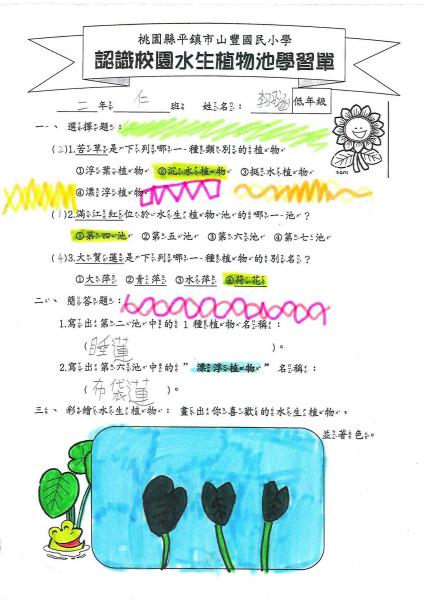 桃園縣平鎮市山豐國民小學
認識校園水生植物池學習單
二年 仁 班 姓名: 低年級
一、選擇題:
(2)1.苦草是下列哪一種類別的植物
①浮葉植物 ②沉水植物 ③挺水植物
④漂浮植物
(1)2.滿江紅位於水生植物池的哪一池?
①第四池 ②第五池 ③第六池 ④第七池
(4)3.大賀蓮是下列哪一種植物的別名?
①大萍 ②青萍 ③水萍 ④荷花
二、簡答題:
1.寫出第二池中的1種植物名稱:
(睡蓮)。
2.寫出第六池中的"漂浮植物"名稱:
(布袋蓮)。
三、彩繪水生植物: 畫出你喜歡的水生植物,
並著色。